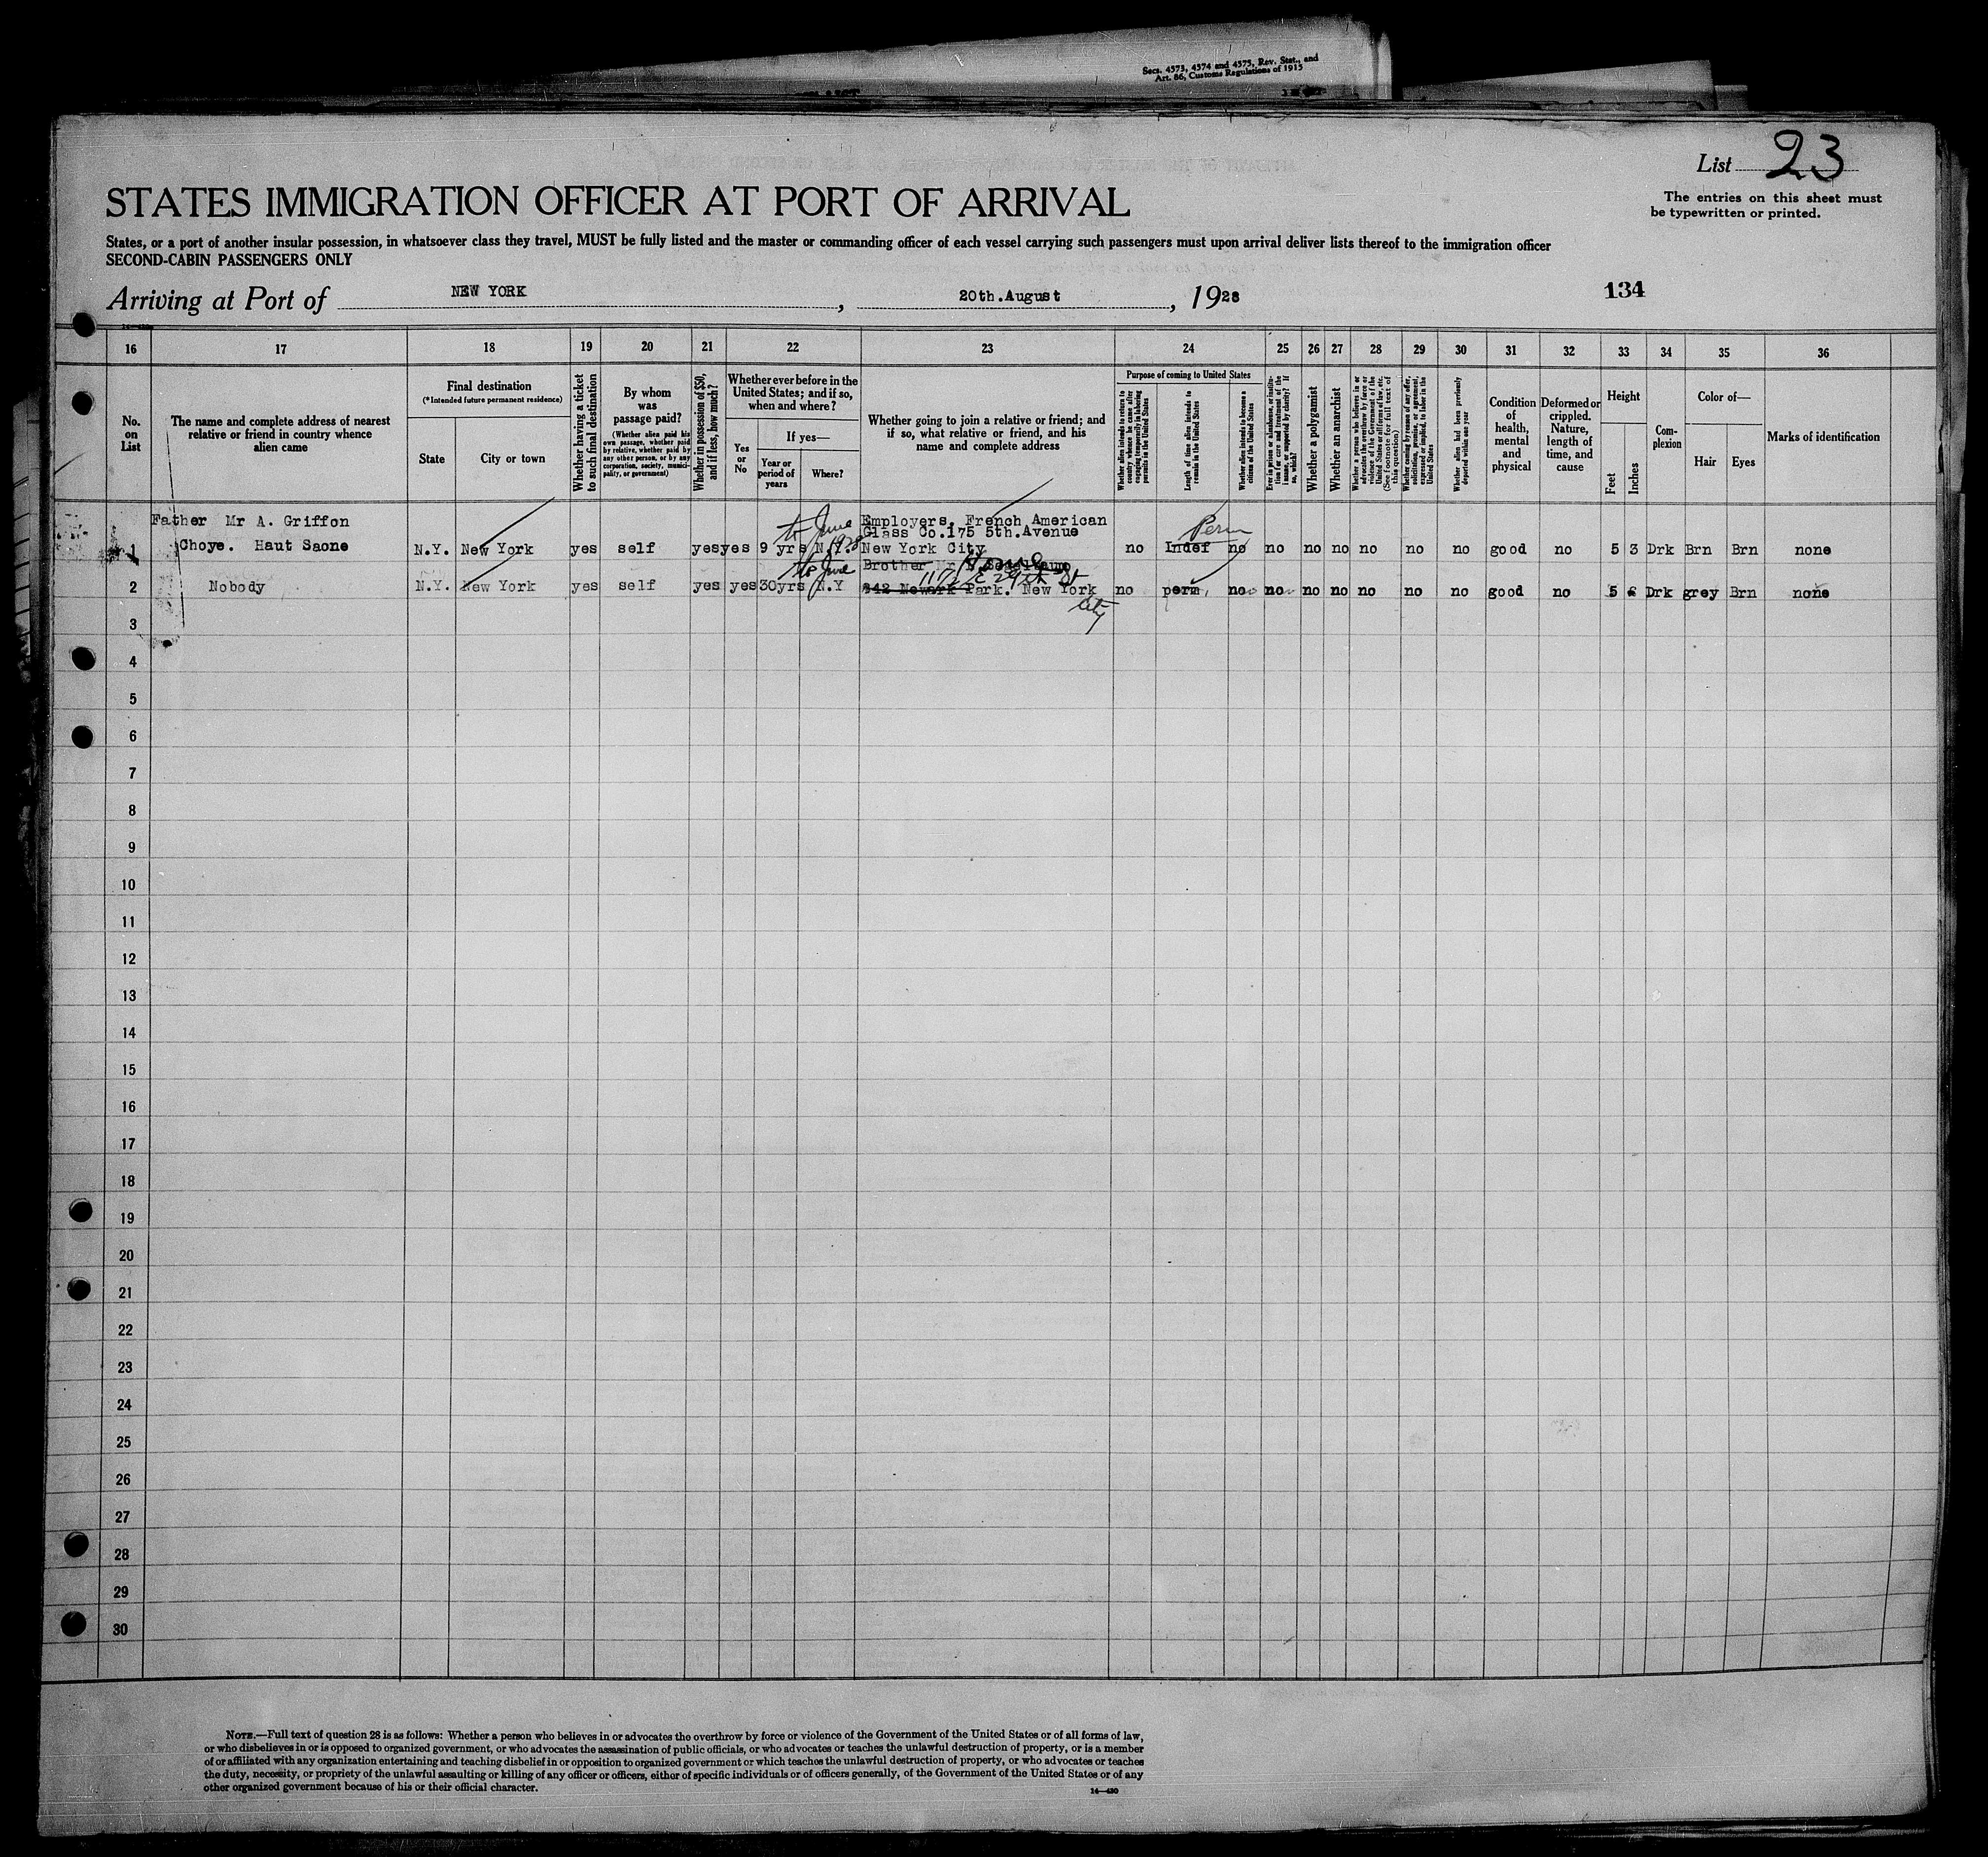 Secs. 4573, 4574 and 4575, Rev. Stat., and
Art. 86, Customs Regulations of 1915
List 23
The entries on this sheet must
be typewritten or printed.
STATES IMMIGRATION OFFICER AT PORT OF ARRIVAL
States, or a port of another insular possession, in whatsoever class they travel, MUST be fully listed and the master or commanding officer of each vessel carrying such passengers must upon arrival deliver lists thereof to the immigration officer
SECOND-CABIN PASSENGERS ONLY
Arriving at Port of NEW YORK, 20th.August, 1928
134
16 17 18 19 20 21 22 23 24 25 26 27 28 29 30 31 32 33 34 35 36
No.
on
List
The name and complete address of nearest
relative or friend in country whence
alien came
Final destination
(*Intended future permanent residence)
State
City or town
Whether having a ticket
to such final destination
By whom
was
passage paid?
(Whether alien paid his
own passage, whether paid
by relative, whether paid by
any other person, or by any
corporation, society, munici-
pality, or government)
Whether in possession of $50,
and if less, how much?
Whether ever before in the
United States; and if so,
when and where?
Yes
or
No
If yes—
Year or
period of
years
Where?
Whether going to join a relative or friend; and
if so, what relative or friend, and his
name and complete address
Purpose of coming to United States
Whether alien intends to return to
country whence he came after
engaging temporarily in laboring
pursuits in the United States
Length of time alien intends to
remain in the United States
Whether alien intends to become a
citizen of the United States
Ever in prison or almshouse, or institu-
tion for care and treatment of the
insane, or supported by charity? If
so, which?
Whether a polygamist
Whether an anarchist
Whether a person who believes in or
advocates the overthrow by force or
violence of the Government of the
United States or all forms of law, etc.
(See footnote for full text of
this question)
Whether coming by reason of any offer,
solicitation, promise, or agreement,
expressed or implied, to labor in the
United States
Whether alien had been previously
deported within one year
Condition
of
health,
mental
and
physical
Deformed or
crippled.
Nature,
length of
time, and
cause
Height
Feet
Inches
Com-
plexion
Color of—
Hair
Eyes
Marks of identification
Father Mr A. Griffon
to June 1928
Employers. French American
Glass Co.175 5th.Avenue
Perm
1 Choye. Haut Saone N.Y. New York yes self yes yes 9 yrs N.Y. New York City no Indef no no no no no no no good no 5 3 Drk Brn Brn none
to June
Brother Mr
117 E 29th St
2 Nobody N.Y. New York yes self yes yes 30yrs N.Y 842 Newark Park. New York no perm. no no no no no no no good no 5 Drk grey Brn none
City
3
4
5
6
7
8
9
10
11
12
13
14
15
16
17
18
19
20
21
22
23
24
25
26
27
28
29
30
NOTE.—Full text of question 28 is as follows: Whether a person who believes in or advocates the overthrow by force or violence of the Government of the United States or of all forms of law,
or who disbelieves in or is opposed to organized government, or who advocates the assassination of public officials, or who advocates or teaches the unlawful destruction of property, or is a member
of or affiliated with any organization entertaining and teaching disbelief in or opposition to organized government or which teaches the unlawful destruction of property, or who advocates or teaches
the duty, necessity, or propriety of the unlawful assaulting or killing of any officer or officers, either of specific individuals or of officers generally, of the Government of the United States or of any
other organized government because of his or their official character.
14—430